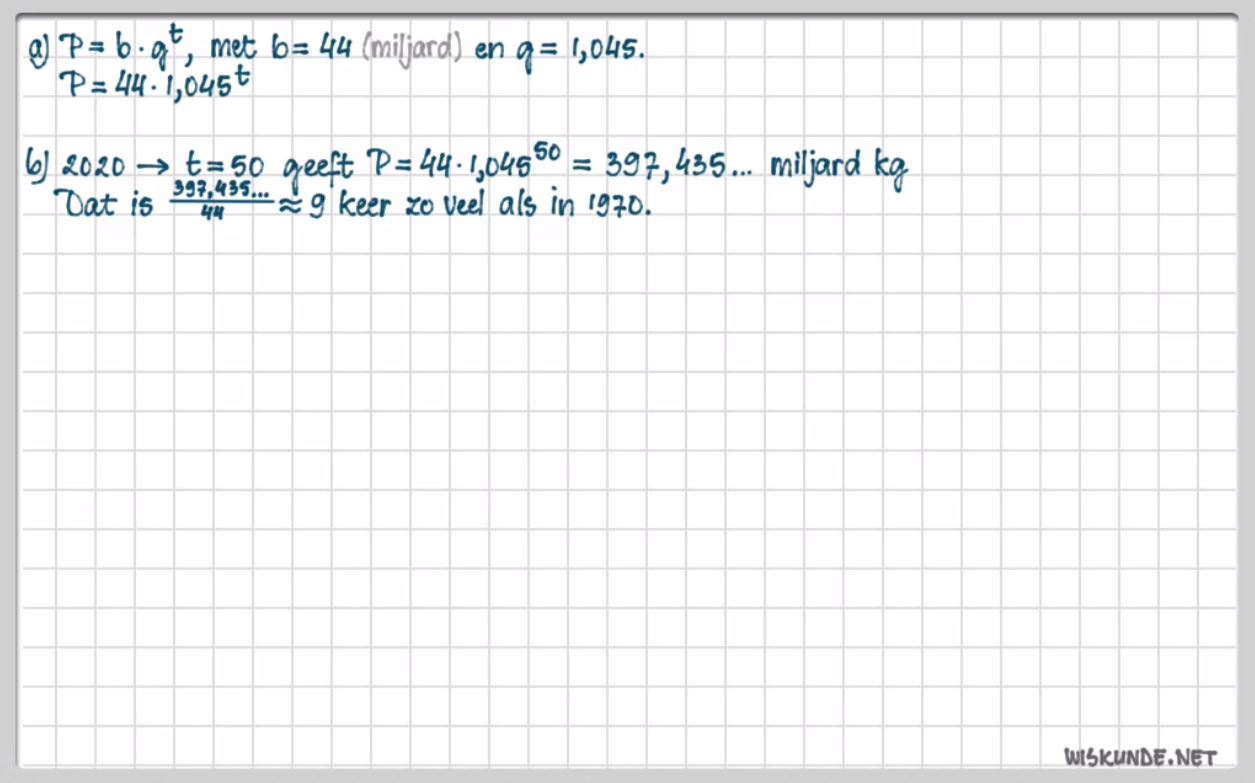 a) P = b · g^t, met b = 44 (miljard) en g = 1,045.
P = 44 · 1,045^t
b) 2020 → t = 50 geeft P = 44 · 1,045^50 = 397,435... miljard kg
Dat is 397,435.../44 ≈ 9 keer zo veel als in 1970.
WISKUNDE.NET